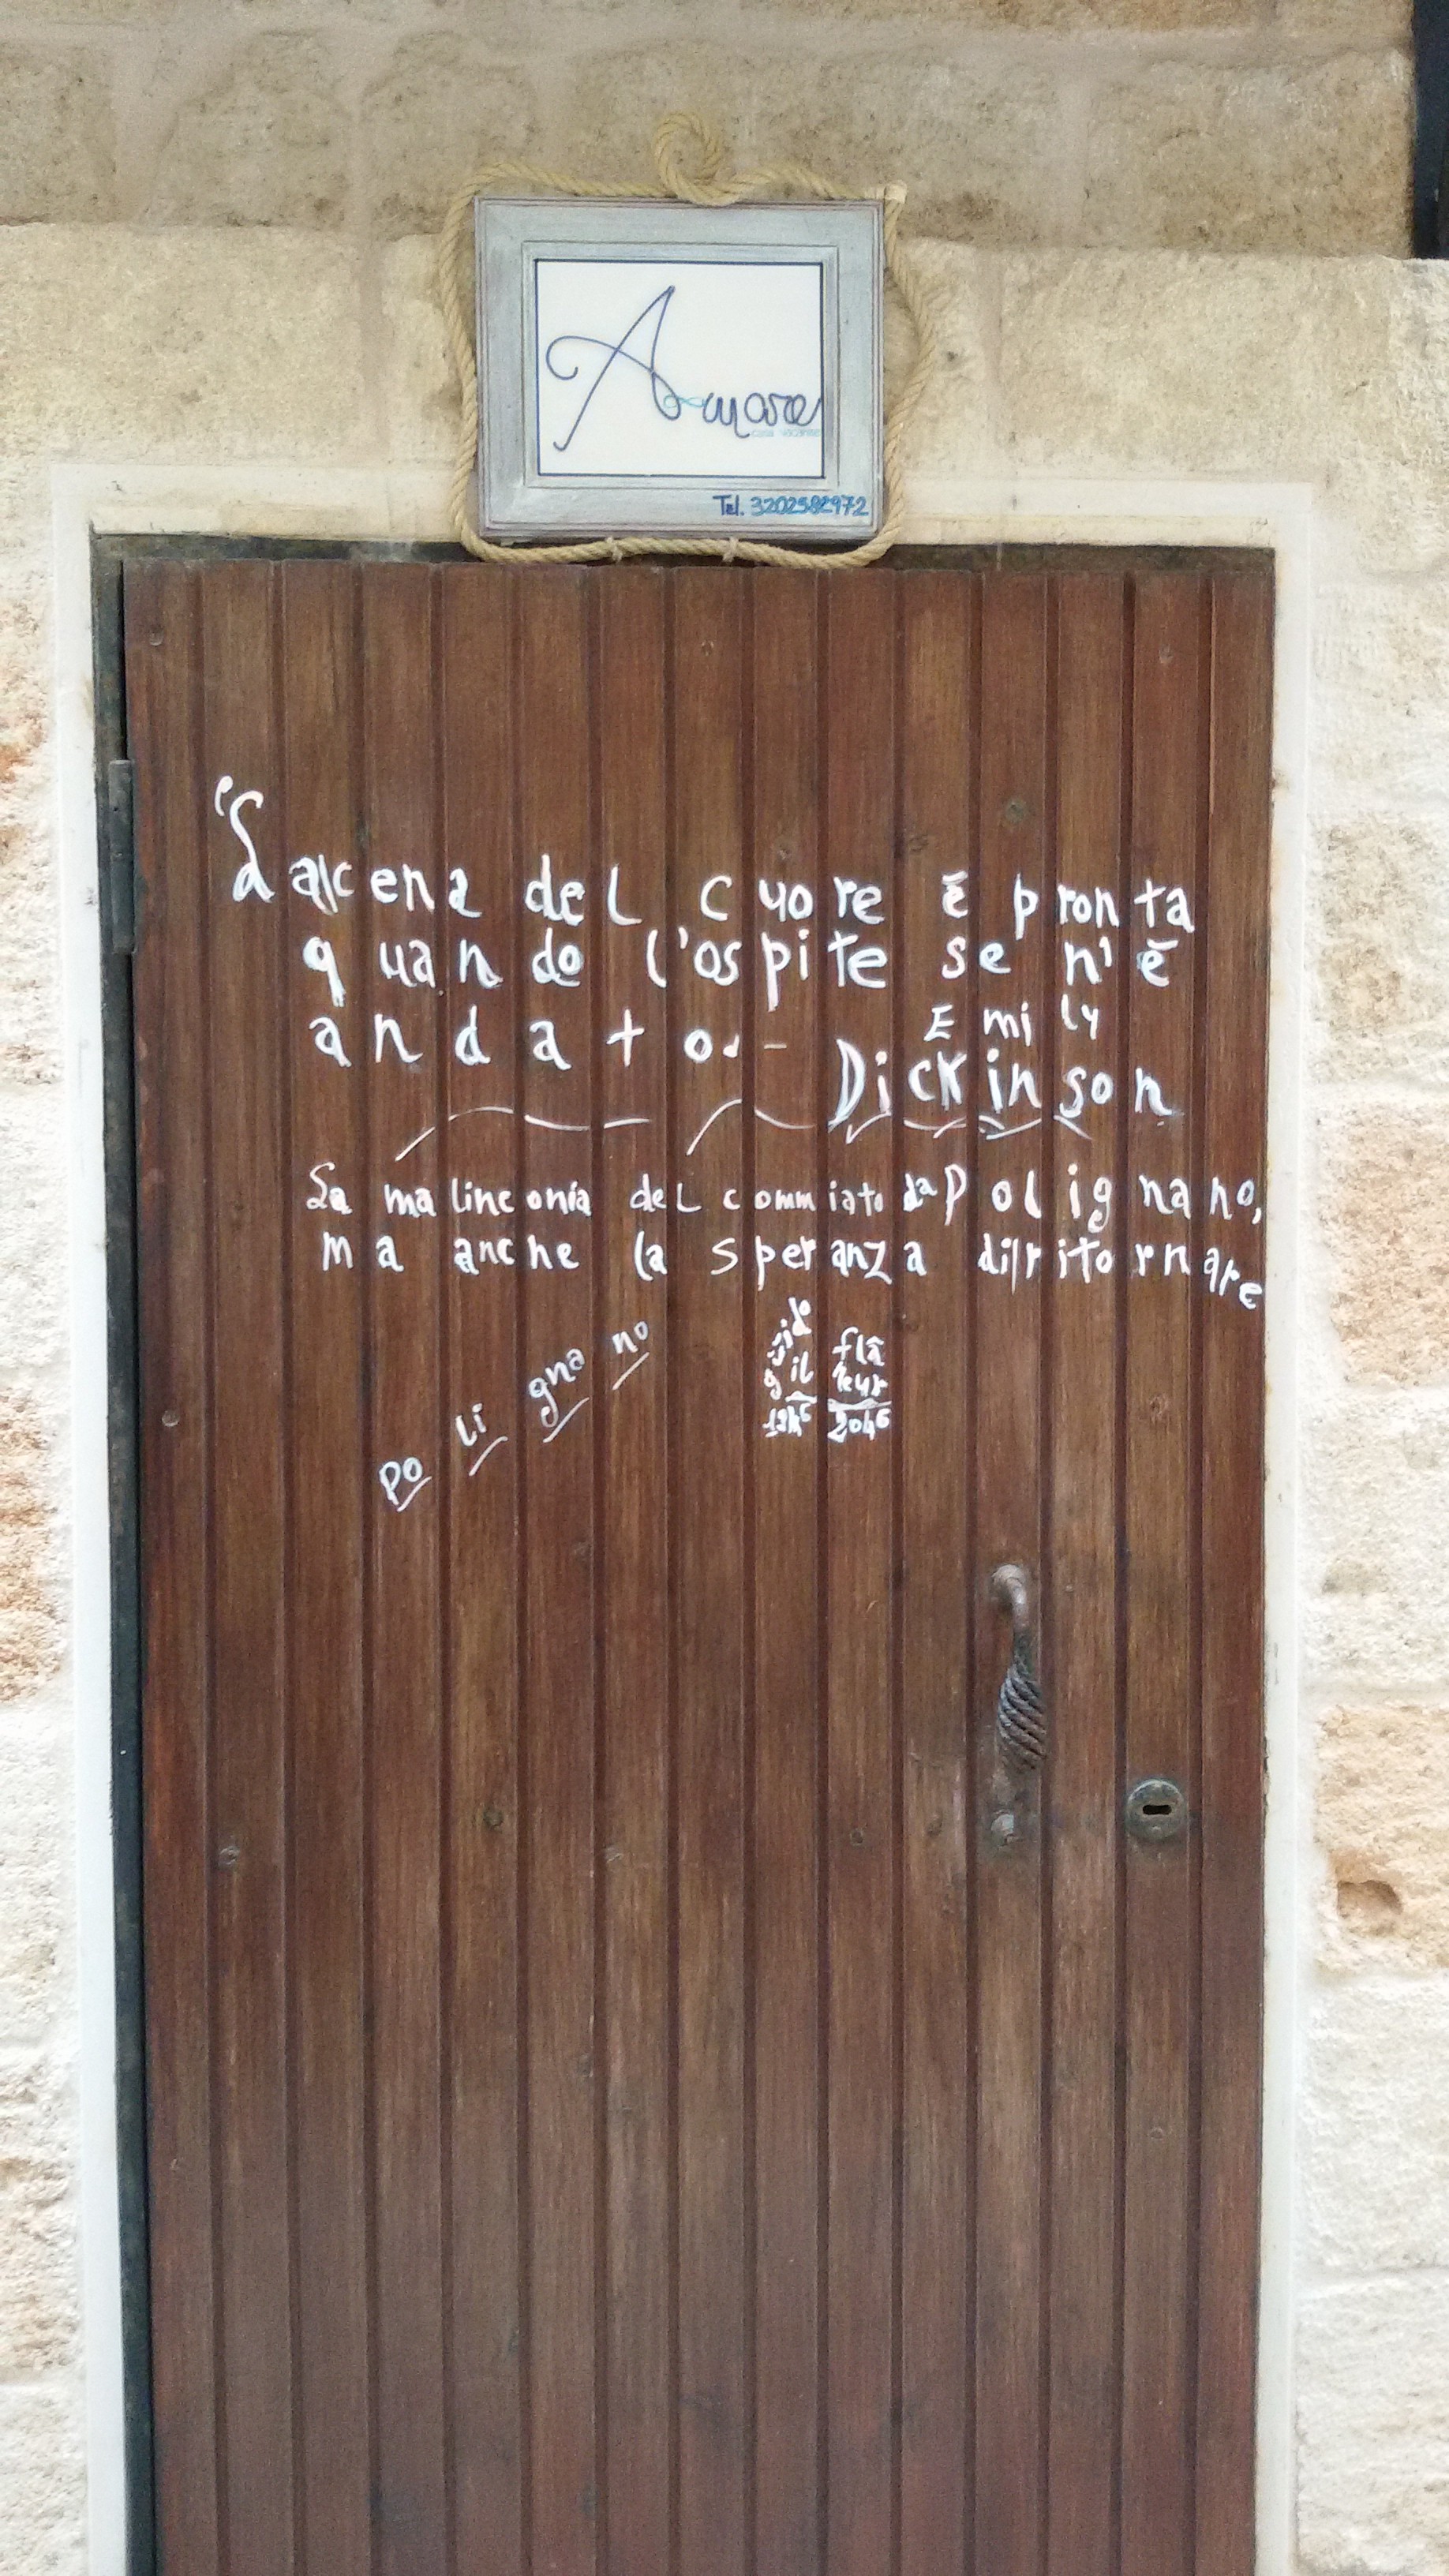 A mare
casa vacanze
Tel. 3202582972
"La cena del cuore è pronta
quando l'ospite se n'è
andato. -
Emily
Dickinson
La malinconia del commiato da Polignano,
ma anche la speranza di ritornare
guido
il flâneur
po li gna no